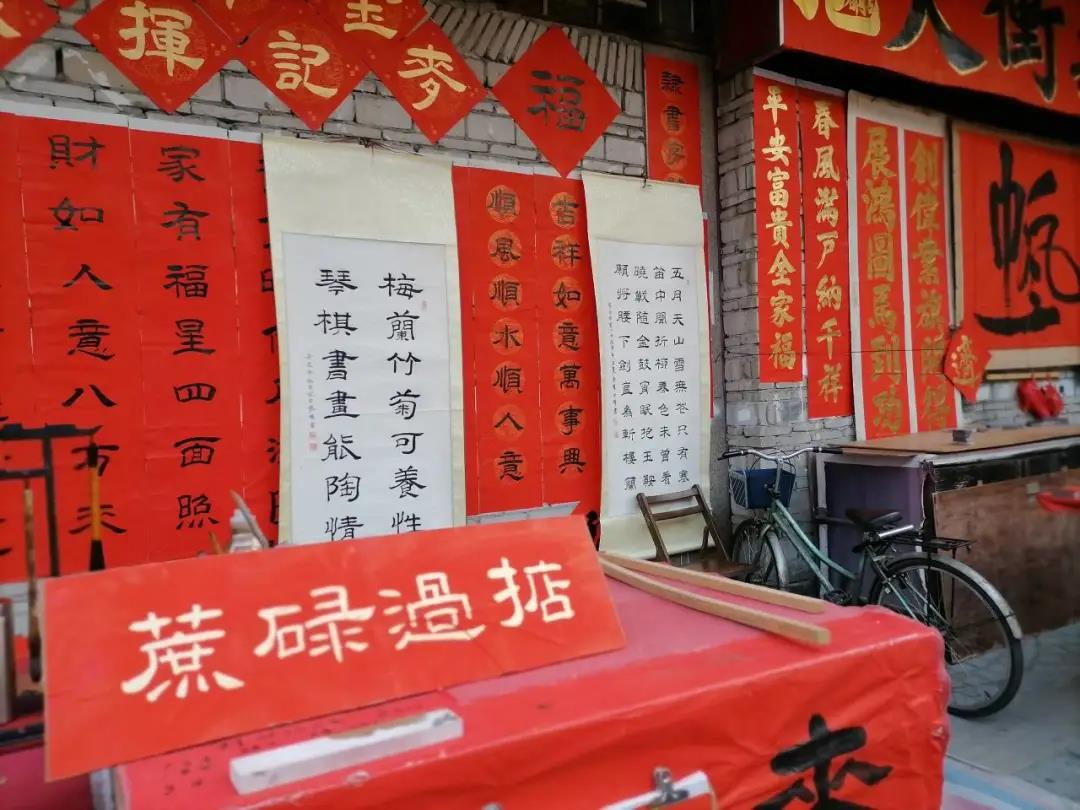 揮
記
金
麥
福
隸書字
人衝
財如人意八方
家有福星四面照
梅蘭竹菊可養性
琴棋書畫能陶情
順風順水順人意
吉祥如意萬事興
五月天山雪無花只有寒
笛中聞折柳春色未曾看
曉戰随金鼓宵眠抱玉鞍
願將腰下劍直為斬樓蘭
平安富貴全家福
春風滿戶納千祥
展鴻圖馬到功
創偉業旗開得
蔗碌過掂